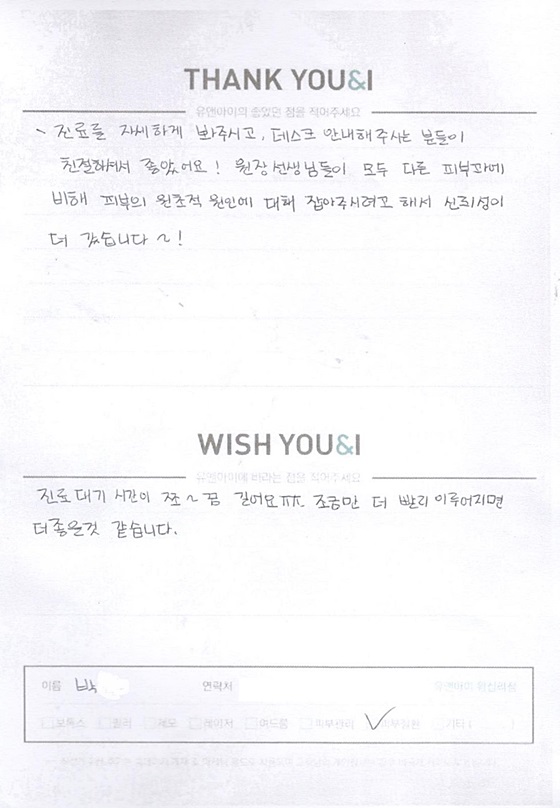 THANK YOU&I
유앤아이의 좋았던 점을 적어주세요
~ 진료를 자세하게 봐주시고, 데스크 안내해주시는 분들이
친절하셔서 좋았어요! 원장선생님들이 모두 다른 피부과에
비해 피부의 원초적 원인에 대해 잡아주시려고 해서 신뢰성이
더 갔습니다~!
WISH YOU&I
유앤아이에 바라는 점을 적어주세요
진료대기 시간이 쪼~끔 길어요ㅠㅠ. 조금만 더 빨리 이루어지면
더좋을것 같습니다.
이름 박 연락처 유앤아이 왕십리점
보톡스 필러 제모 레이저 여드름 피부관리 피부질환 기타 ( )